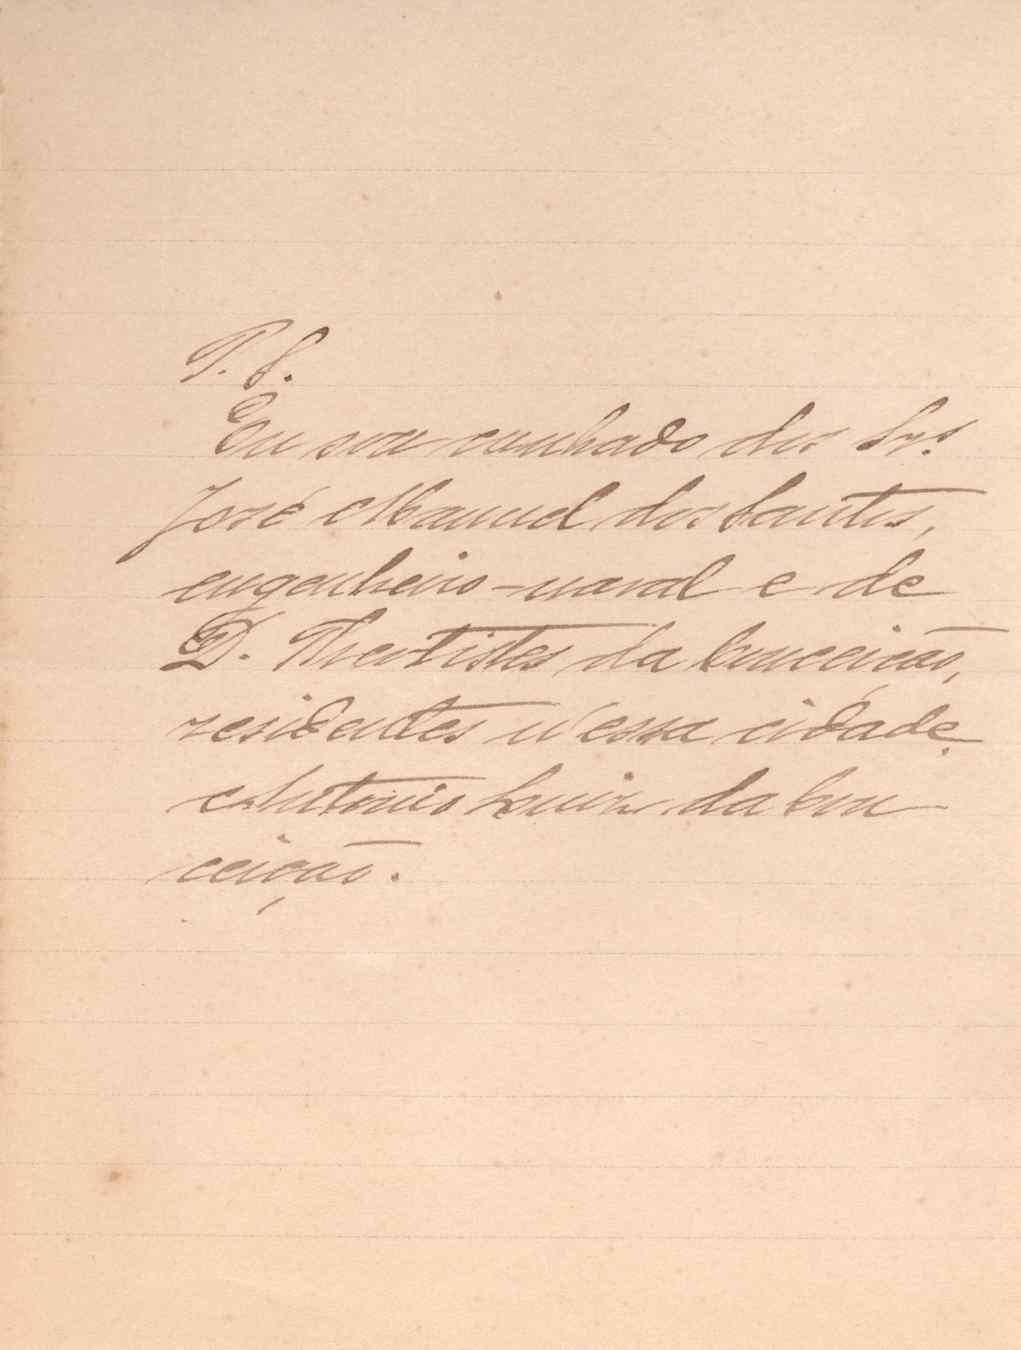 P. S.
Eu sou cunhado dos Srs.
José Manuel dos Santos,
engenheiro-naval e de
D. Theotistes da Conceição,
residentes n'essa cidade.
Antonio Luiz da Con
ceição.